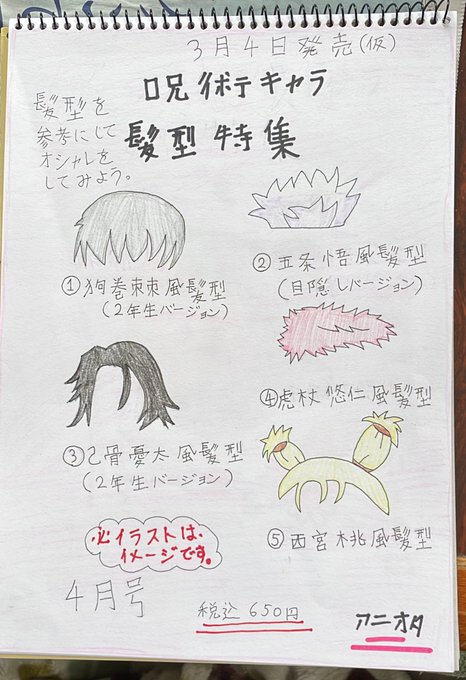 3月4日発売(仮)
呪術キャラ
髪型特集
髪型を
参考にして
オシャレを
してみよう。
①狗巻棘風髪型
(2年生バージョン)
②五条悟風髪型
(目隠しバージョン)
③乙骨憂太風髪型
(2年生バージョン)
④虎杖悠仁風髪型
⑤西宮桃風髪型
※イラストは、
イメージです。
4月号
税込650円
アニオタ